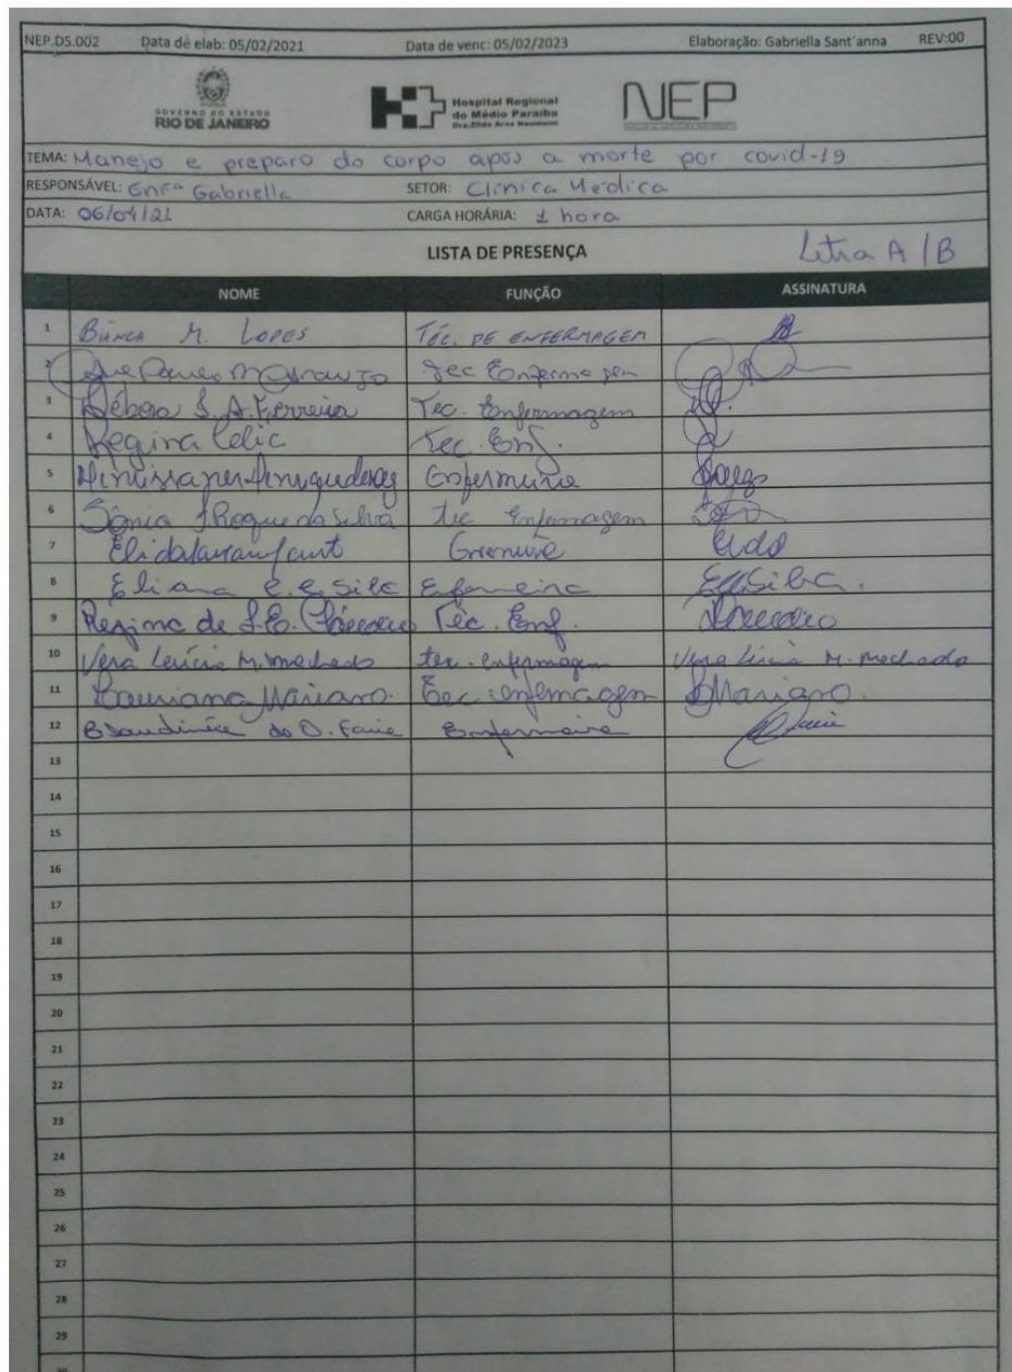 NEP.DS.002 Data de elab: 05/02/2021 Data de venc: 05/02/2023 Elaboração: Gabriella Sant´anna REV:00
GOVERNO DO ESTADO
RIO DE JANEIRO
Hospital Regional
do Médio Paraíba
Dra. Zilda Arns Neumann
NEP
TEMA: Manejo e preparo do corpo após a morte por covid-19
RESPONSÁVEL: Enfª Gabriella SETOR: Clínica Médica
DATA: 06/04/21 CARGA HORÁRIA: 1 hora
LISTA DE PRESENÇA Letra A/B
NOME FUNÇÃO ASSINATURA
1 M. LOPES TÉC. DE ENFERMAGEM
2 Tec Enfermagem
3 Débora S. A. Ferreira Tec. Enfermagem
4 Regina Celia Tec. Enf.
5 Enfermeira
6 Sônia Roque da Silva Tec Enfermagem
7
8 Eliana C. e Silva Enfermeira
9 Regina de Téc. Enf.
10 Vera Lúcia M. Machado tec. enfermagem Vera Lúcia M. Machado
11 Mariano. Tec. enfermagem Mariano.
12 do O. Faria Enfermeira
13
14
15
16
17
18
19
20
21
22
23
24
25
26
27
28
29
30